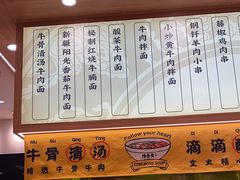 牛骨清汤牛肉面
新疆阳光番茄牛肉面
秘制红烧牛腩面
酸菜牛肉面
牛肉拌面
小炒黄牛肉拌面
钢钎羊肉小串
藤椒鸡肉小串
Niu Gu Qing Tang
牛骨清汤
精选牛骨牛肉
Follow your heart
COW BONE SOUP
滴滴
文火精